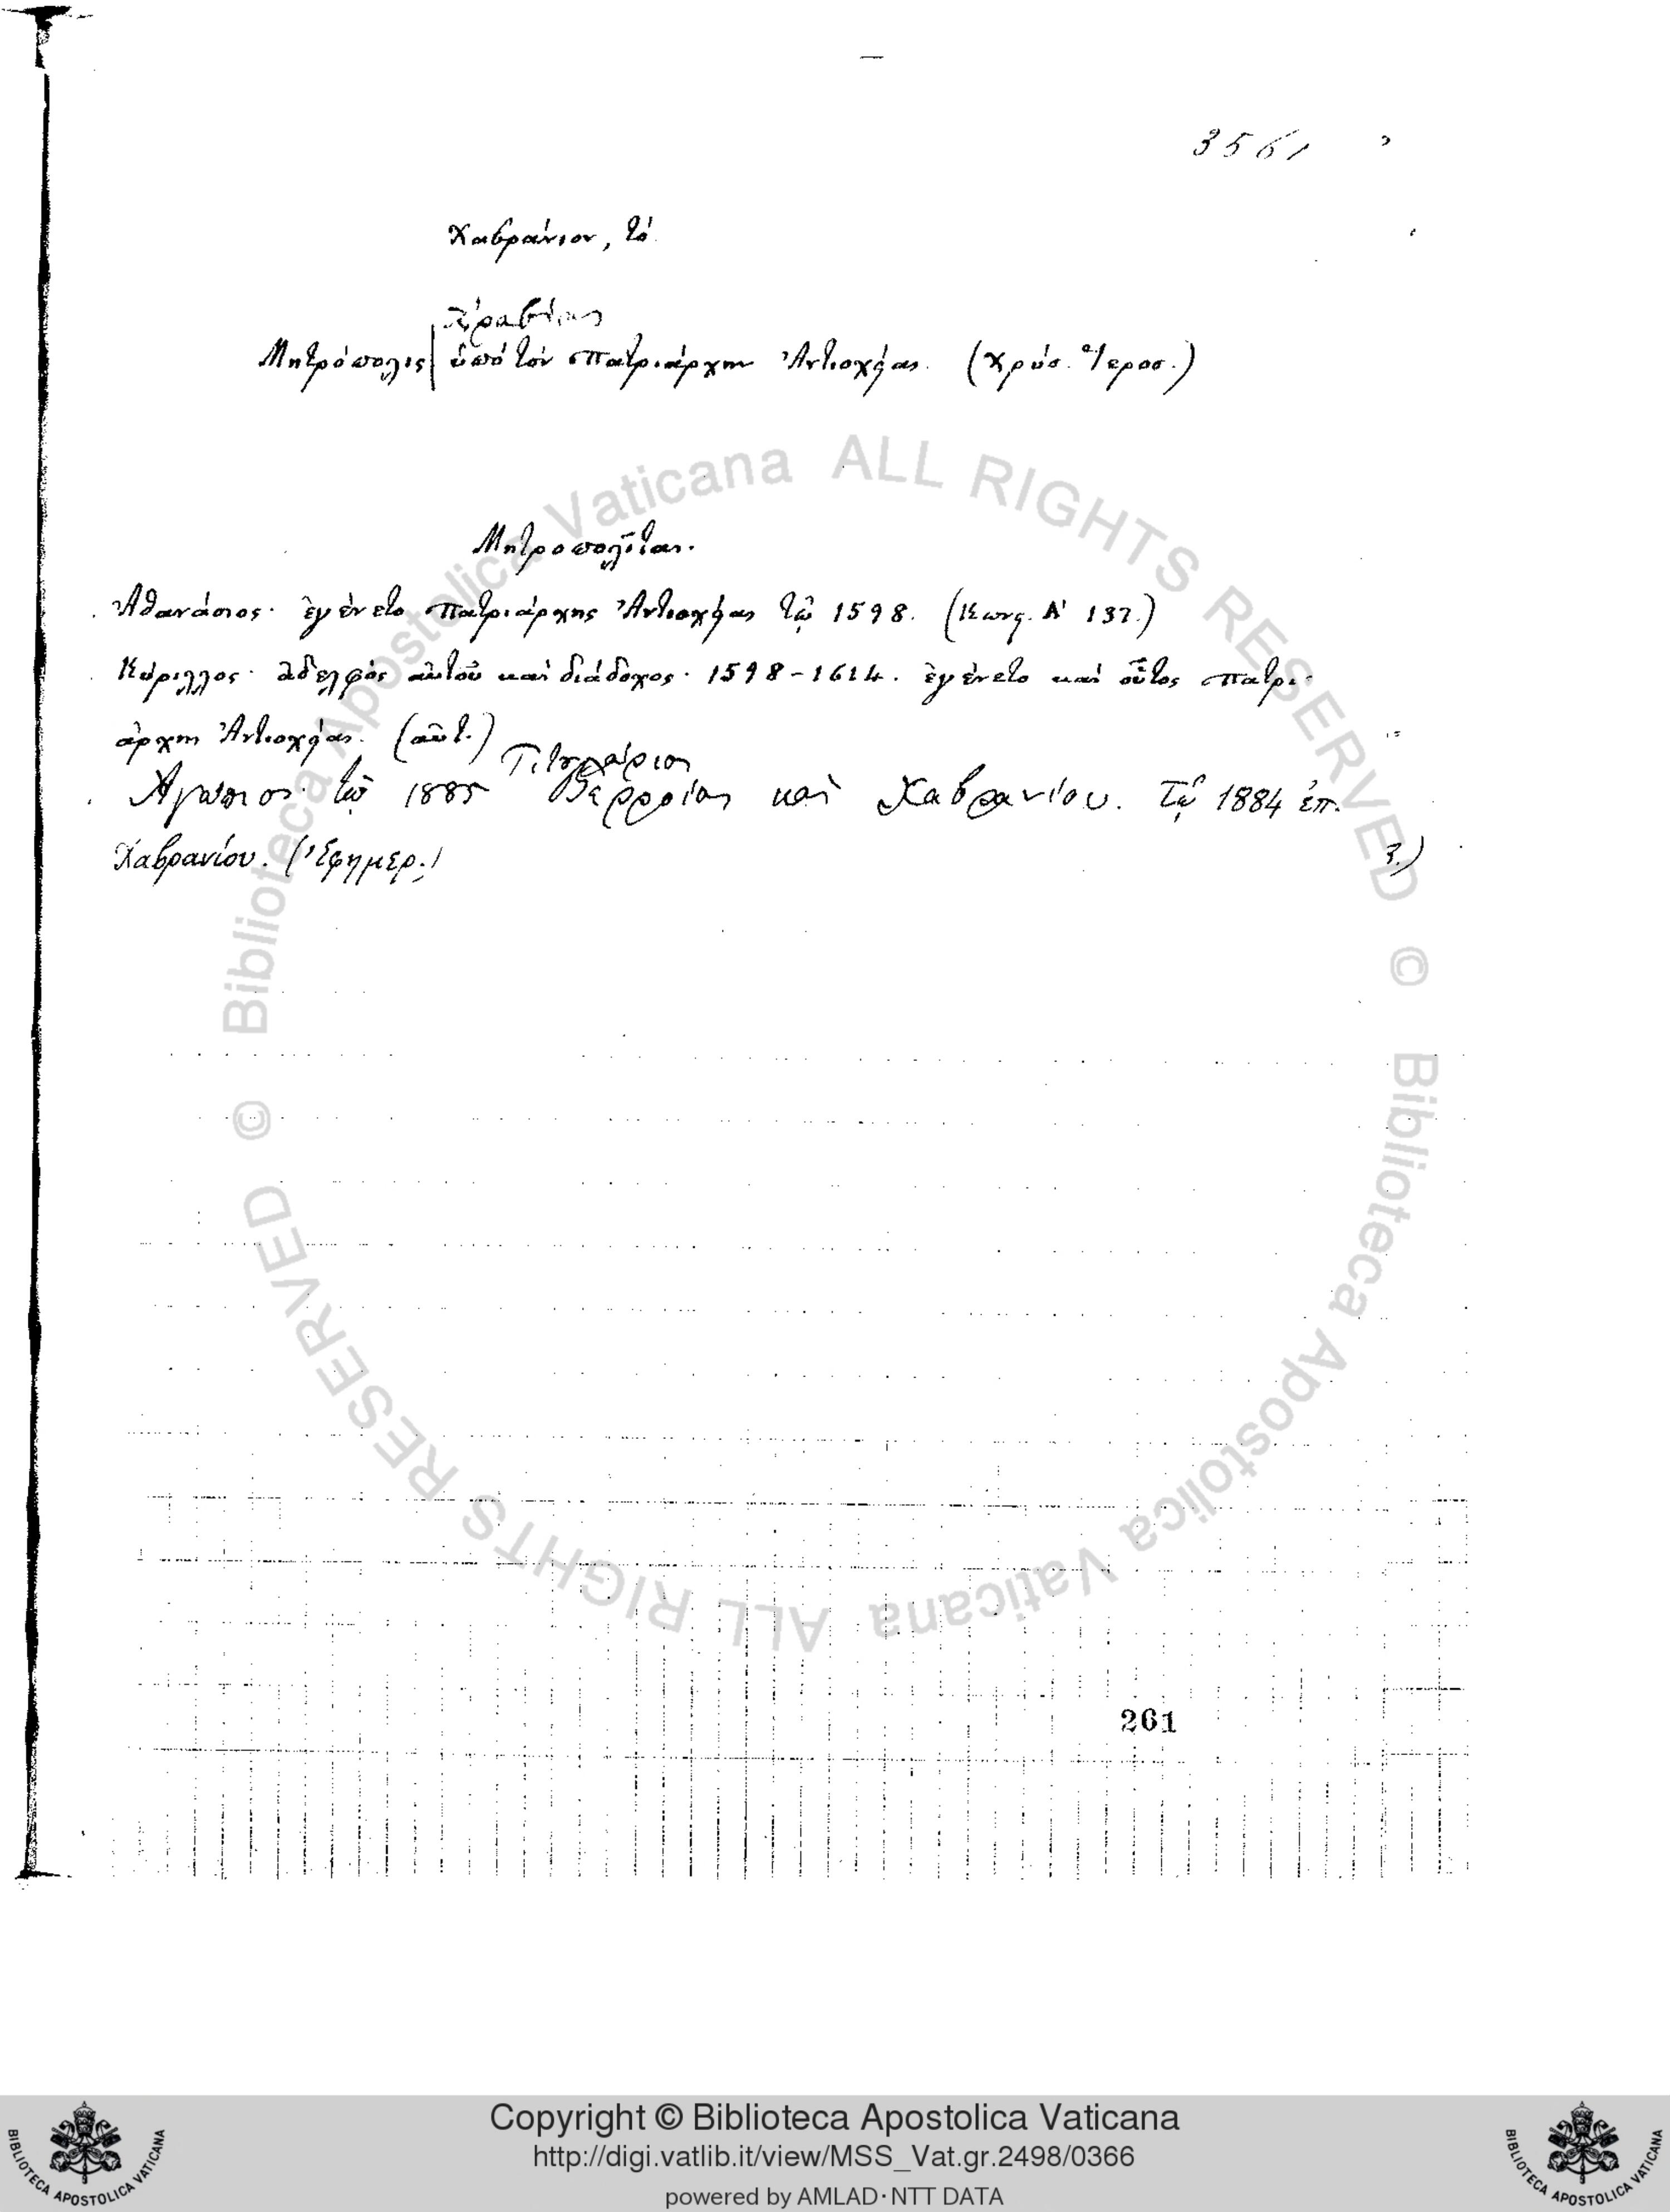 3561
Χαβράνιον, τό.
Ἀραβίας
Μητρόπολις ὑπὸ τὸν πατριάρχην Ἀντιοχείας. (Χρύσ. Ἱεροσ.)
Μητροπολῖται.
Ἀθανάσιος· ἐγένετο πατριάρχης Ἀντιοχείας τῷ 1598. (Κωνς. Α' 137.)
Κύριλλος· ἀδελφὸς αὐτοῦ καὶ διάδοχος· 1598-1614. ἐγένετο καὶ οὗτος πατρι-
άρχης Ἀντιοχείας. (αὐτ.)
Ἀγάπιος τῷ 1885 Βερροίας καὶ Χαβρανίου. Τῷ 1884 ἐπ.
Χαβρανίου. (Ἐφημερ.)
261
© Biblioteca Apostolica Vaticana ALL RIGHTS RESERVED
© Biblioteca Apostolica Vaticana ALL RIGHTS RESERVED
Copyright © Biblioteca Apostolica Vaticana
http://digi.vatlib.it/view/MSS_Vat.gr.2498/0366
powered by AMLAD·NTT DATA
BIBLIOTECA APOSTOLICA VATICANA
BIBLIOTECA APOSTOLICA VATICANA